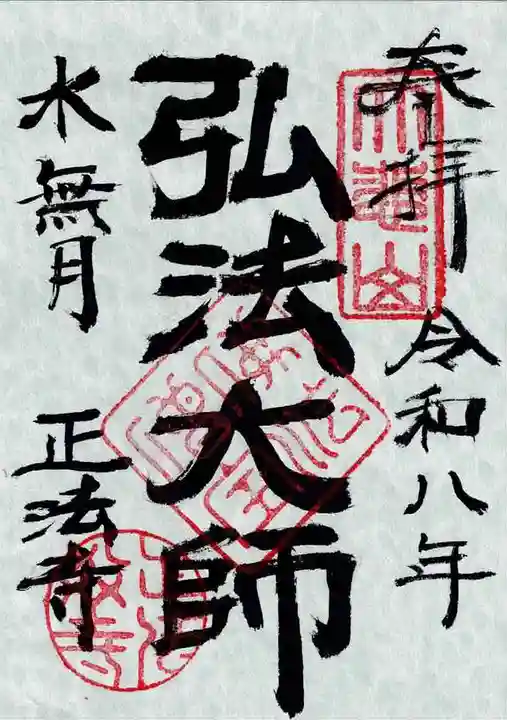 奉拝
令和八年
弘法大師
水無月
正法寺